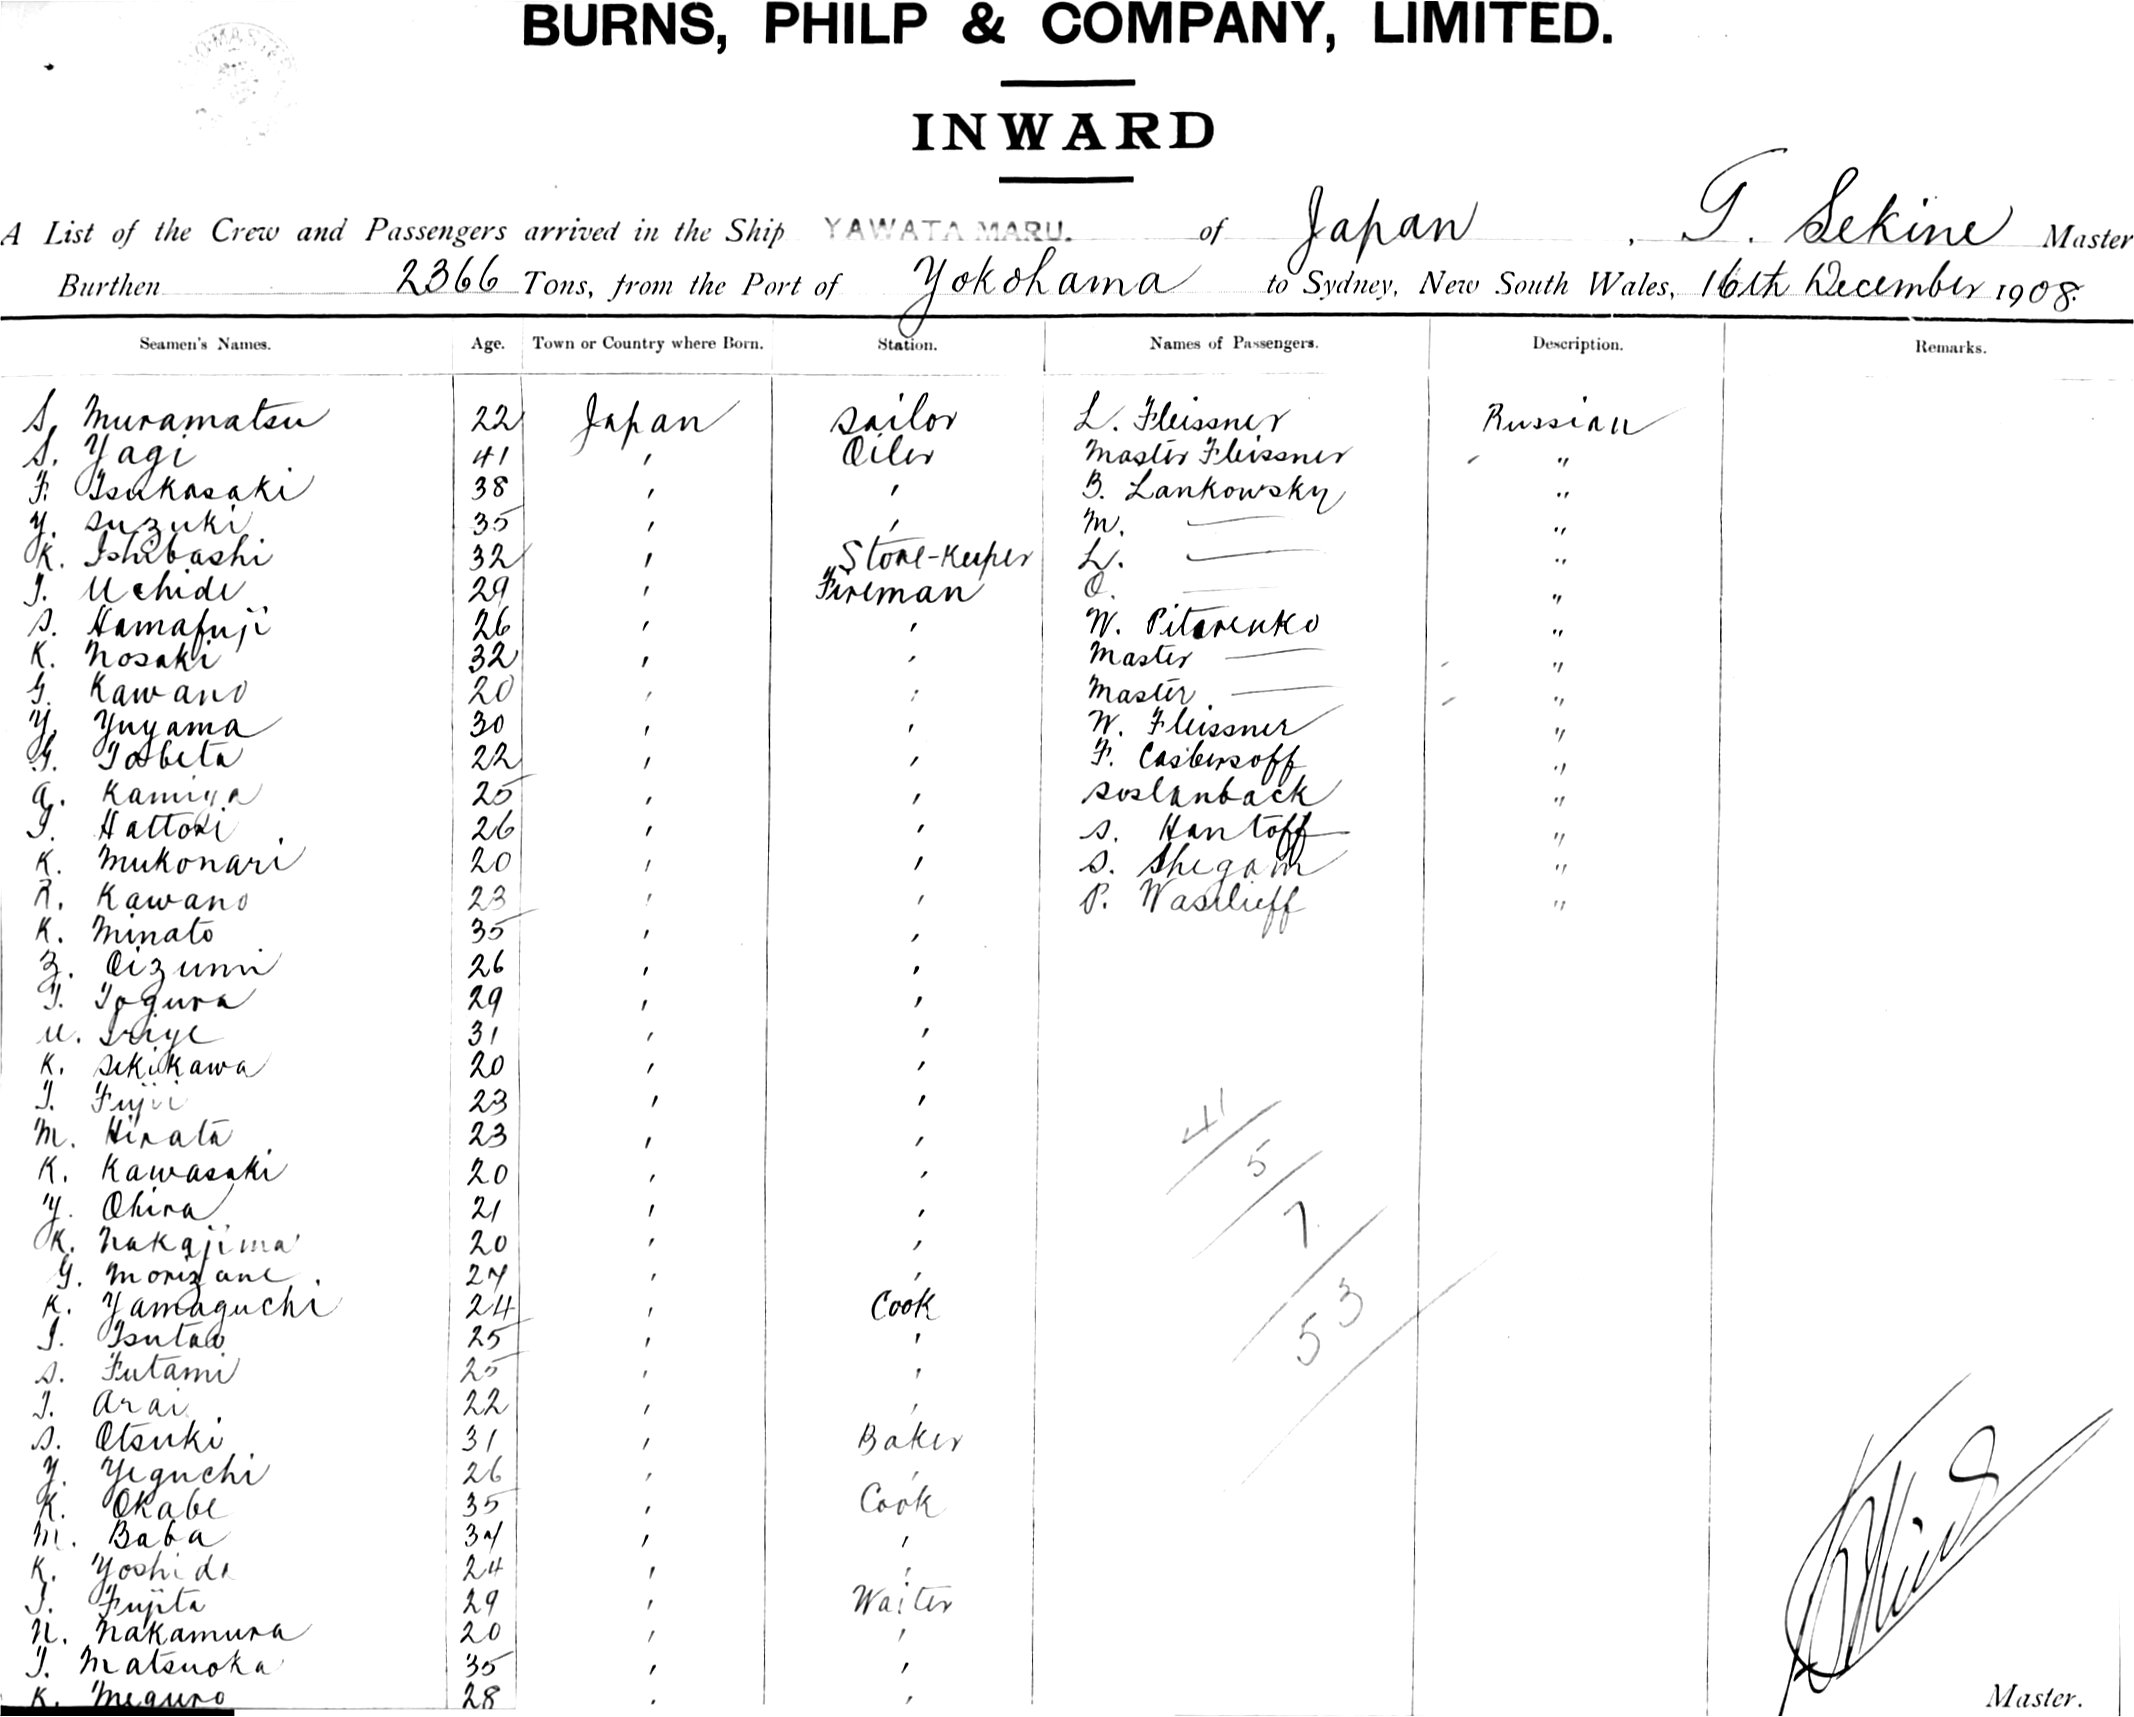 BURNS, PHILP & COMPANY, LIMITED.
INWARD
A List of the Crew and Passengers arrived in the Ship YAWATA MARU. of Japan, T. Sekine Master
Burthen 2366 Tons, from the Port of Yokohama to Sydney, New South Wales, 16th December 1908.
Seamen's Names. Age. Town or Country where Born. Station. Names of Passengers. Description. Remarks.
S. Muramatsu 22 Japan Sailor L. Fleissner Russian
S. Yagi 41 ' Oiler Master Fleissner "
F. Tsukasaki 38 ' ' B. Lankowsky "
Y. Suzuki 35 ' ' M. — "
K. Ishibashi 32 ' Store-Keeper L. — "
T. Uchide 29 ' Fireman O. — "
S. Hamafuji 26 ' ' W. Pitarenko "
K. Nosaki 32 ' ' Master — "
G. Kawano 20 ' ' Master — "
Y. Yuyama 30 ' ' W. Fleissner "
G. Tobeta 22 ' ' F. "
A. Kamiya 25 ' ' Soslanback "
T. Hattori 26 ' ' S. Hantoff "
K. Mukonari 20 ' ' S. Shegam "
R. Kawano 23 ' ' P. Wasilieff "
K. Minato 35 ' '
Z. Oizumi 26 ' '
T. Togura 29 ' '
U. Iriye 31 ' '
K. Sekikawa 20 ' '
T. Fujii 23 ' '
M. Hirata 23 ' '
K. Kawasaki 20 ' '
Y. Ohira 21 ' '
K. Nakajima 20 ' '
G. Morizane 27 ' '
K. Yamaguchi 24 ' Cook
T. 25 ' '
S. Futami 25 ' '
T. Arai 22 ' '
S. Otsuki 31 ' Baker
Y. Yeguchi 26 ' '
K. Okabe 35 ' Cook
M. Baba 37 ' '
K. Yoshida 24 ' '
T. Fujita 29 ' Waiter
N. Nakamura 20 ' '
T. Matsuoka 35 ' '
K. Meguro 28 ' '
41
5
7
53
Master.